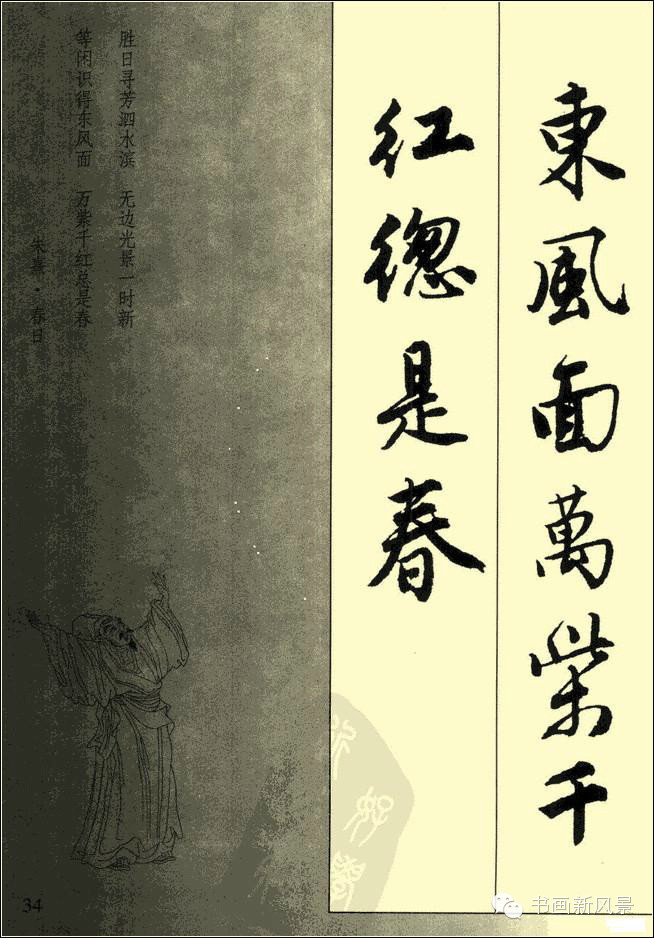 東風面萬紫千
紅總是春
胜日寻芳泗水滨　无边光景一时新
等闲识得东风面　万紫千红总是春
朱熹·春日
34
书画新风景